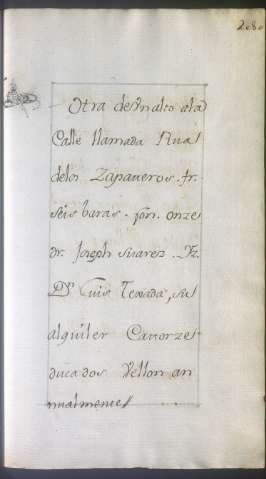 2080
Otra de Vn alto ala
Calle llamada Rua
delos Zapaueros. fr.
seis baras. fon. onze
dr. Joseph suarez. Yz.
Dn. Luis Texada, su
alquiler Cauorze
ducados Vellon an
nualmente